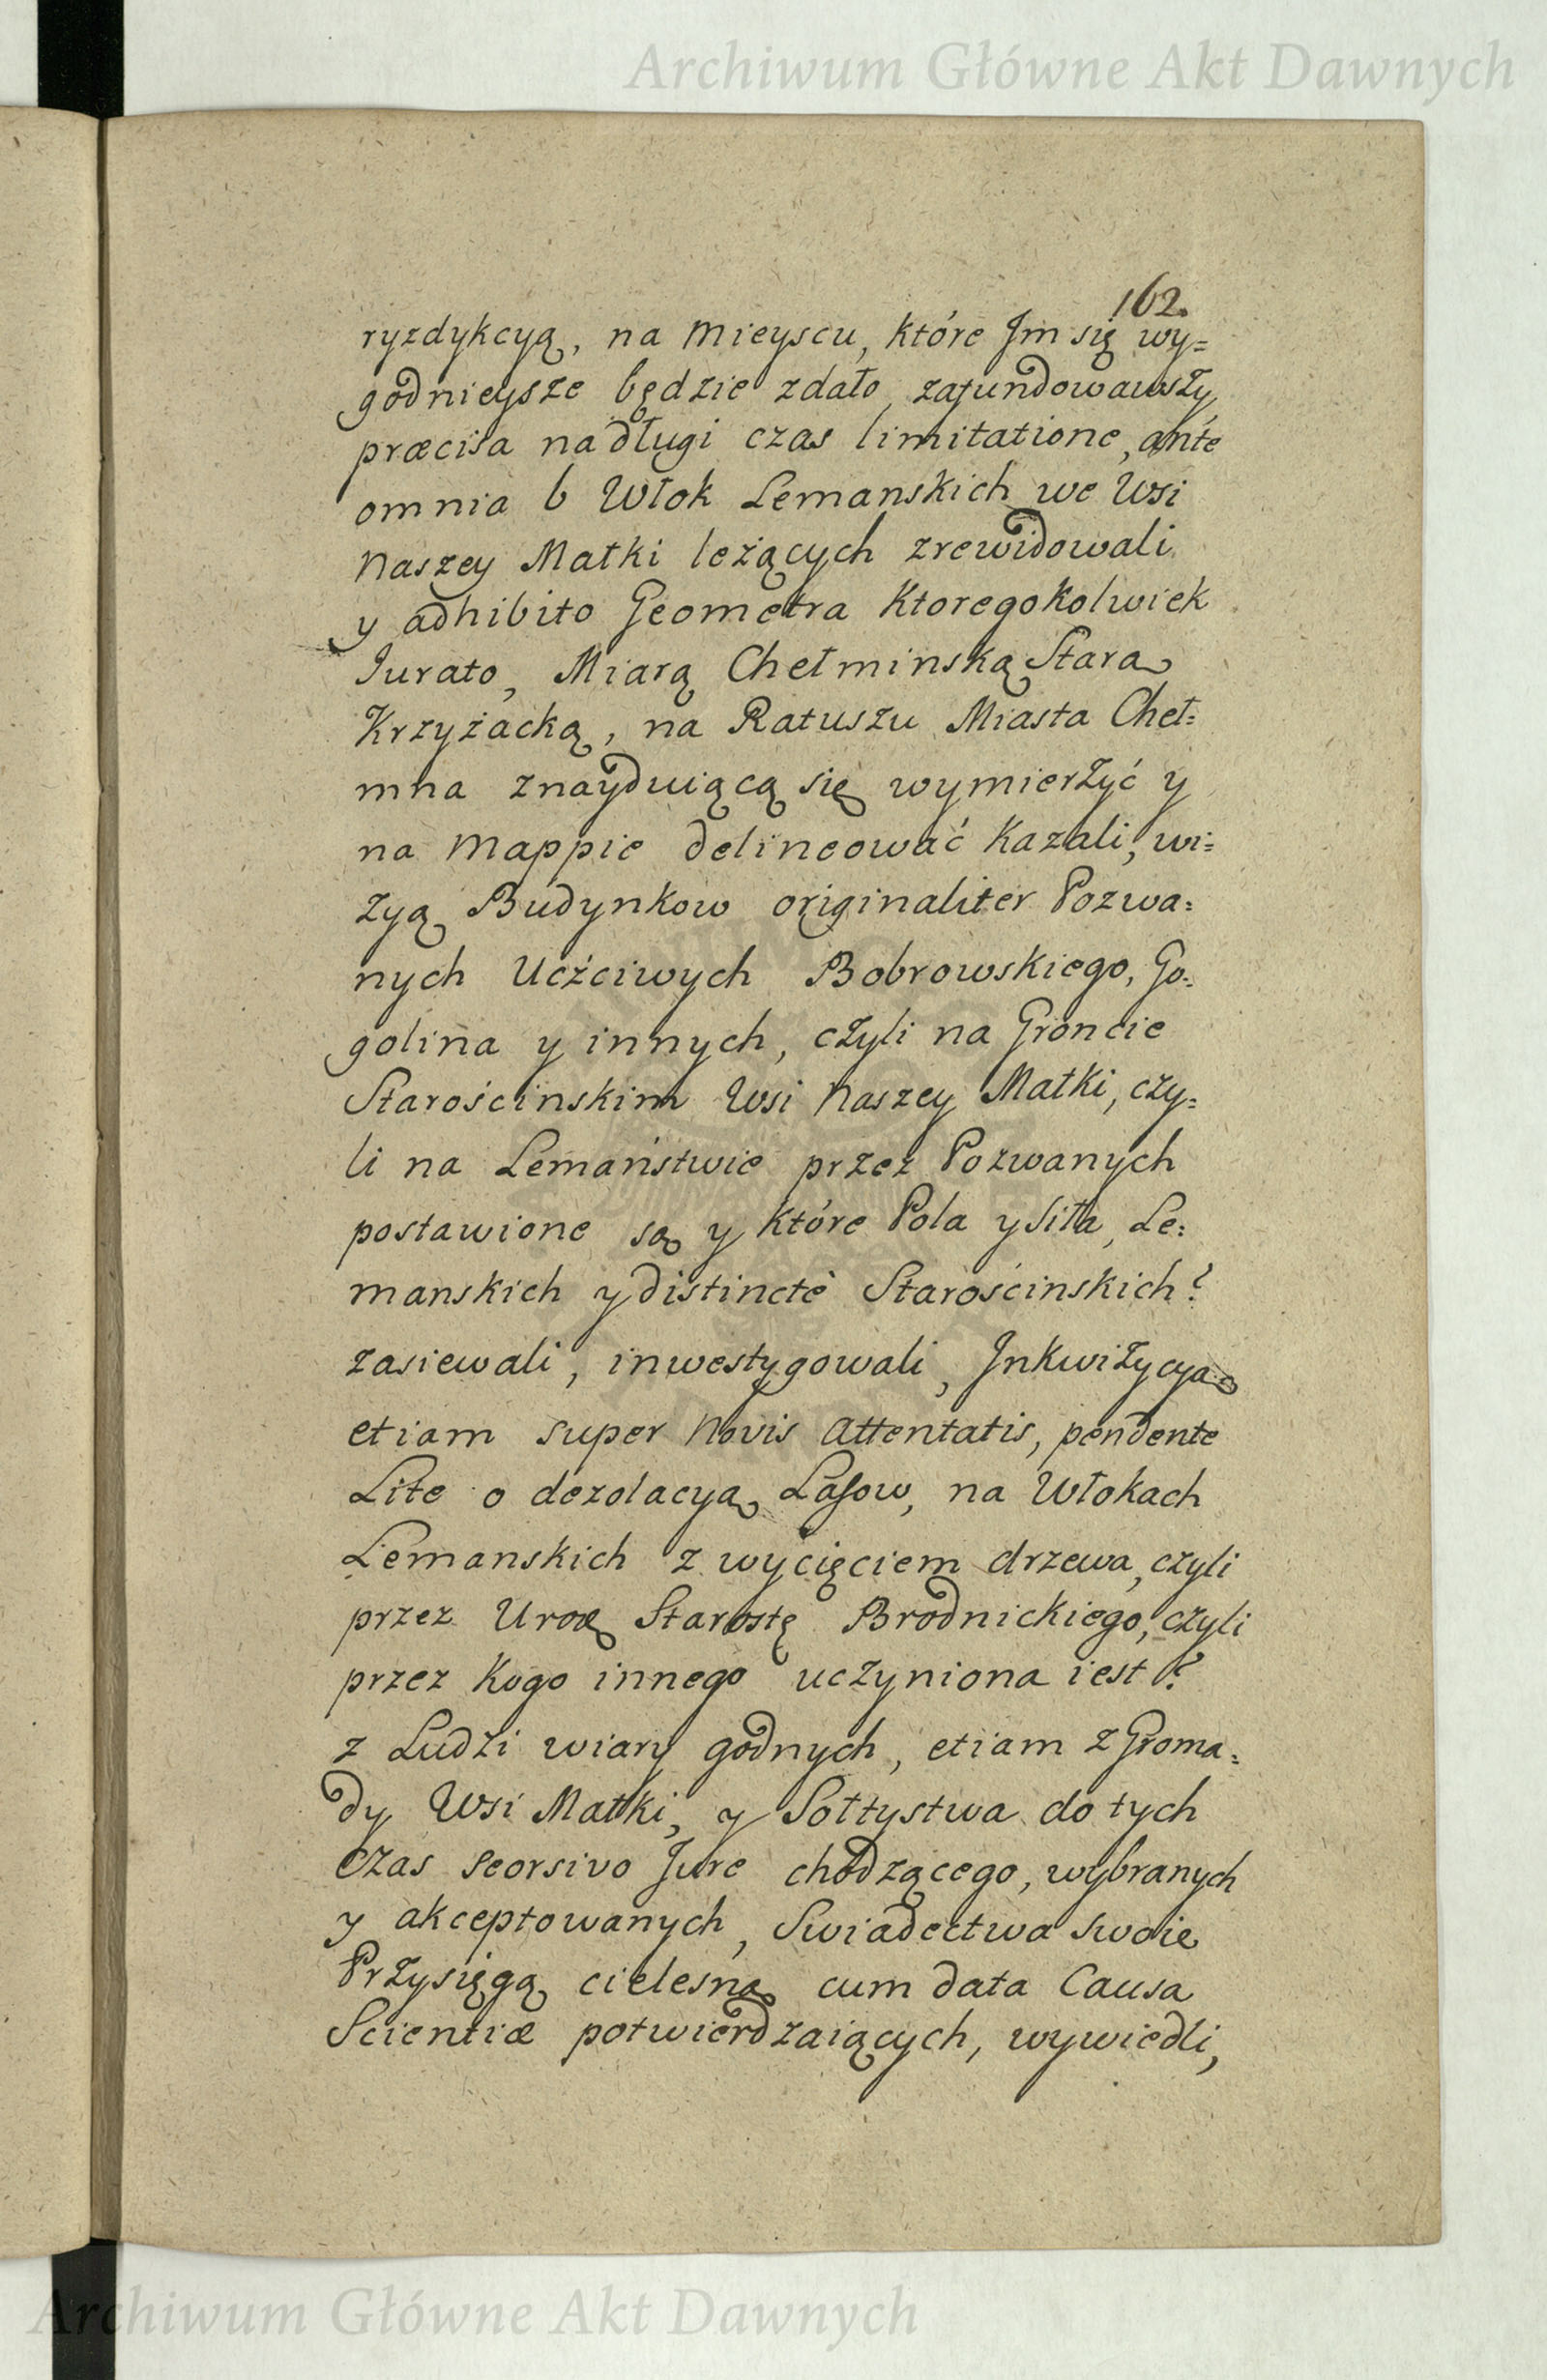 Archiwum Główne Akt Dawnych
162.
ryzdykcyą, na Mieyscu, które Jm się wy=
godnieysze będzie zdało, zafundowawszy,
præcisa na długi czas limitatione, ante
omnia 6 Włok Lemanskich we Wsi
Naszey Matki leżących zrewidowali
y adhibito Geometra Ktoregokolwiek
Jurato, Miarą Chełminską Starą
Krzyżacką, na Ratuszu Miasta Cheł=
mna znayduiącą się wymierżyć y
na Mappie delineować Kazali, wi=
zyą Budynkow originaliter Pozwa=
nych Uczciwych Bobrowskiego, Go=
golina y innych, czyli na Gróncie
Starościnskim Wsi Naszey Matki, czy=
li na Lemaństwie przez Pozwanych
postawione są y które Pola y Siła, Le=
manskich y distinctè Starościnskich?
zasiewali, inwestygowali, Jnkwizycyą
etiam super Novis Attentatis, pendente
Lite o dezolacyą Lasow, na Włokach
Lemanskich z wycięciem drzewa, czyli
przez Urod Starostę Brodnickiego, czyli
przez Kogo innego uczyniona iest?
z Ludzi wiary godnych, etiam z Groma=
dy Wsi Matki, y Sołtystwa do tych
czas seorsivo Jure chodzącego, wybranych
y akceptowanych, Swiadectwa swoie
Przysięgą cielesną cum data Causa
Scientiæ potwierdzaiących, wywiedli,
Archiwum Główne Akt Dawnych